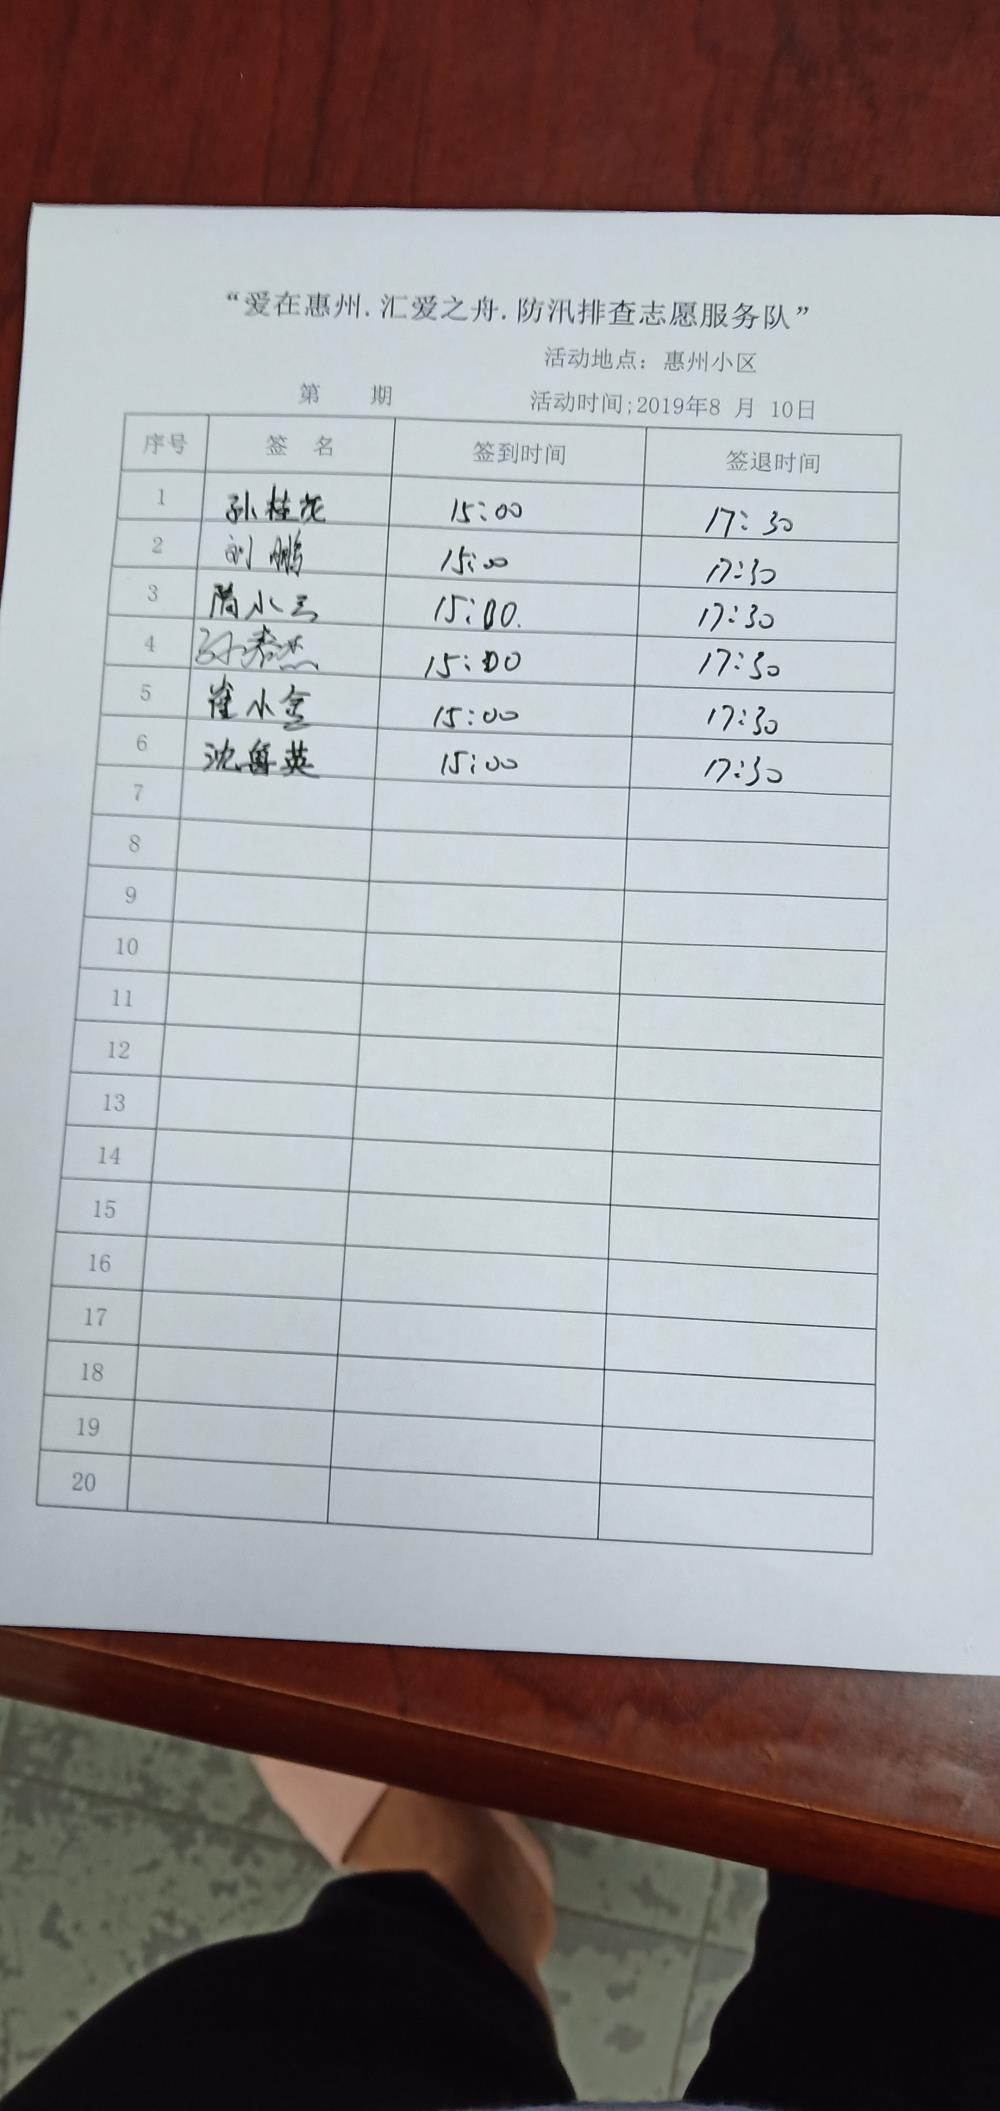 “爱在惠州.汇爱之舟.防汛排查志愿服务队”
活动地点：惠州小区
第 期 活动时间;2019年8 月 10日
序号 签 名 签到时间 签退时间
1 孙桂花 15:00 17:30
2 刘鹏 15:00 17:30
3 隋小云 15:00. 17:30
4 孙春杰 15:00 17:30
5 崔小金 15:00 17:30
6 沈鲁英 15:00 17:30
7
8
9
10
11
12
13
14
15
16
17
18
19
20